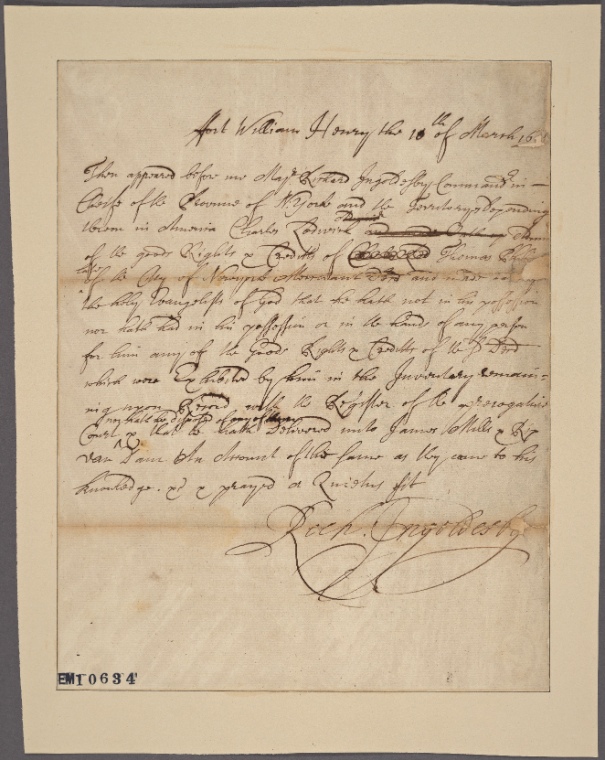 ffort William Henry the 18th of March
Then appeared before me Majr Richard Ingoldesby Commandr in
Cheife of the Province of N:York and the Territorys depending
thereon in America Charles Lodwick
of the goods Rights & Creditts of Thomas
of the City of Newyork Merchant Decd and made oath on
the holy Evangelists of God that he hath not in his possession
nor hath had in his possession or in the hands of any person
for him any of the Goods Rights & Creditts of the sd Decd
which were Exhibited by him in the Inventary remain-
ing upon Record with the Register of the prerogative
nor hath he disposed of any of them
Court & that he hath Delivered unto James Mills & Rip
van Dam An Account of the same as they came to his
knowledge. & prayed a Quietus
Rich. Ingoldesby
EM10634